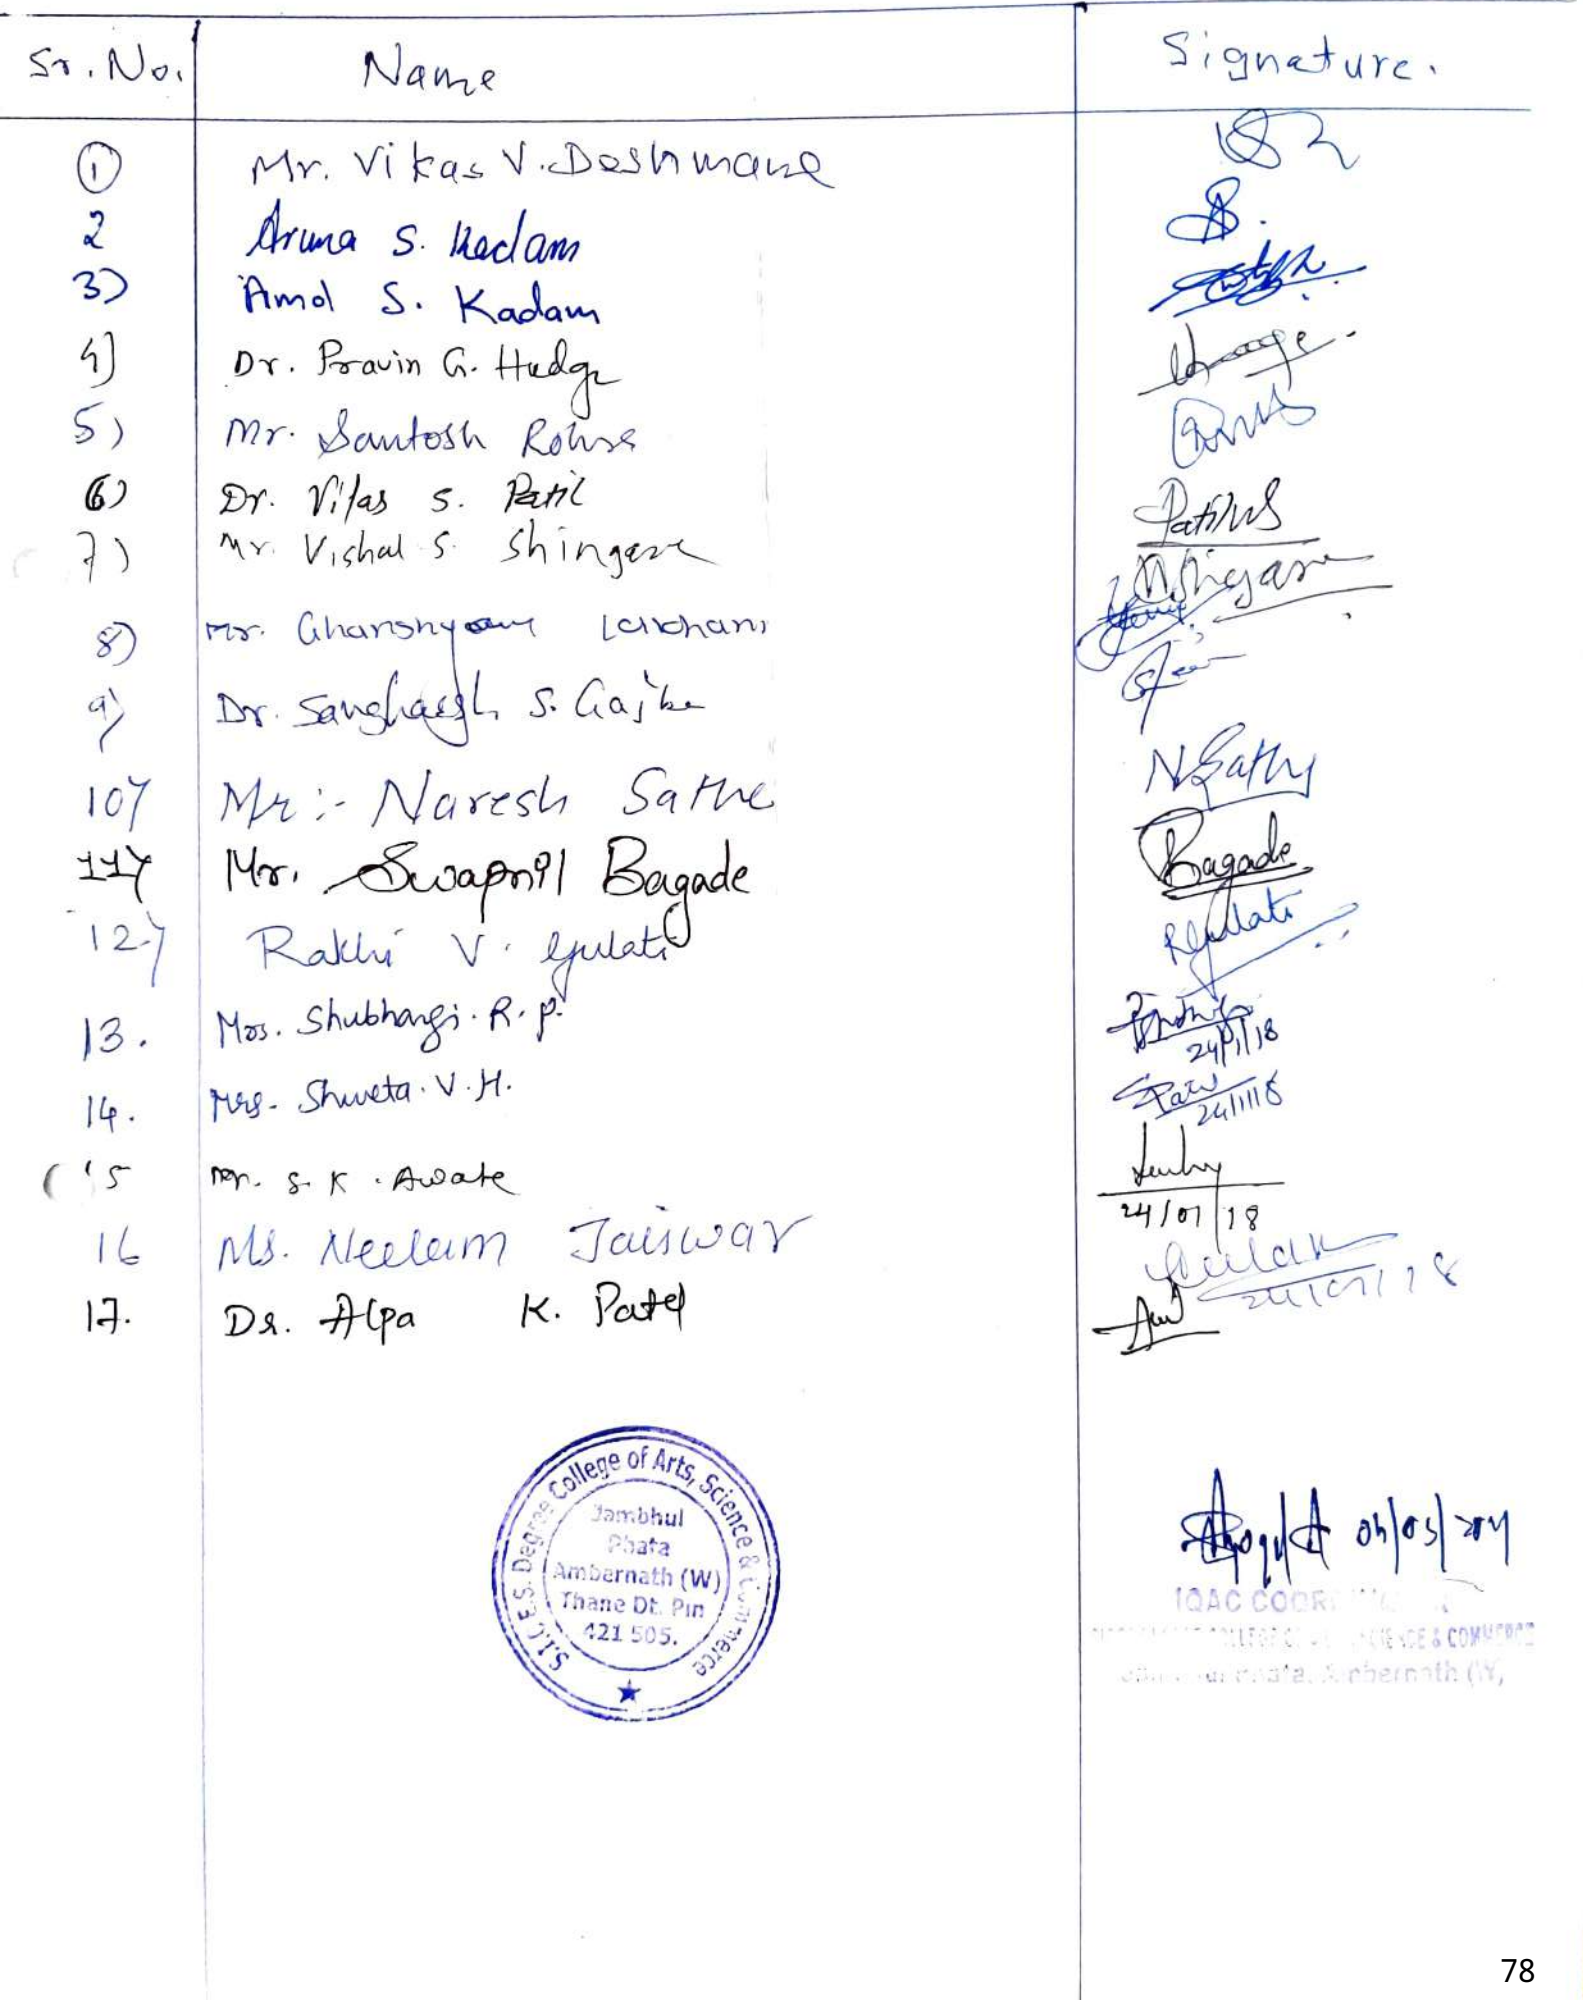 Sr. No. Name Signature.
1 Mr. Vikas V. Deshmane
2 Aruna S. Kadam
3) Amol S. Kadam
4] Dr. Pravin G. Hudge
5) Mr. Santosh
6) Dr. Vilas S. Patil PatilVS
7) Mr. Vishal S. Shingare
8) Mr. Ghanshyam Lakhani
9) Dr. S. Gajbe
10) Mr:- Naresh Sathe NSathe
11) Mr. Swapnil Bagade Bagade
12.) Rakhi V. Gulati RGulati
13. Mrs. Shubhangi. R. P.
24/1/18
14. Mrs. Shweta. V. H.
24/1/18
15 S. K. Awate
24/01/18
16 Ms. Neelam Jaiswar
24/01/18
17. Dr. Alpa K. Patel
S.I.C.E.S. Degree College of Arts, Science & Commerce
Jambhul
Phata
Ambernath (W)
Thane Dt. Pin
421 505.
IQAC
SCIENCE & COMMERCE
Phata, Ambernath (W)
78